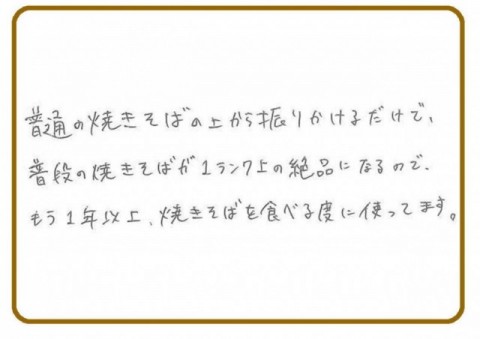 普通の焼きそばの上から振りかけるだけで、
普段の焼きそばが1ランク上の絶品になるので、
もう1年以上、焼きそばを食べる度に使ってます。